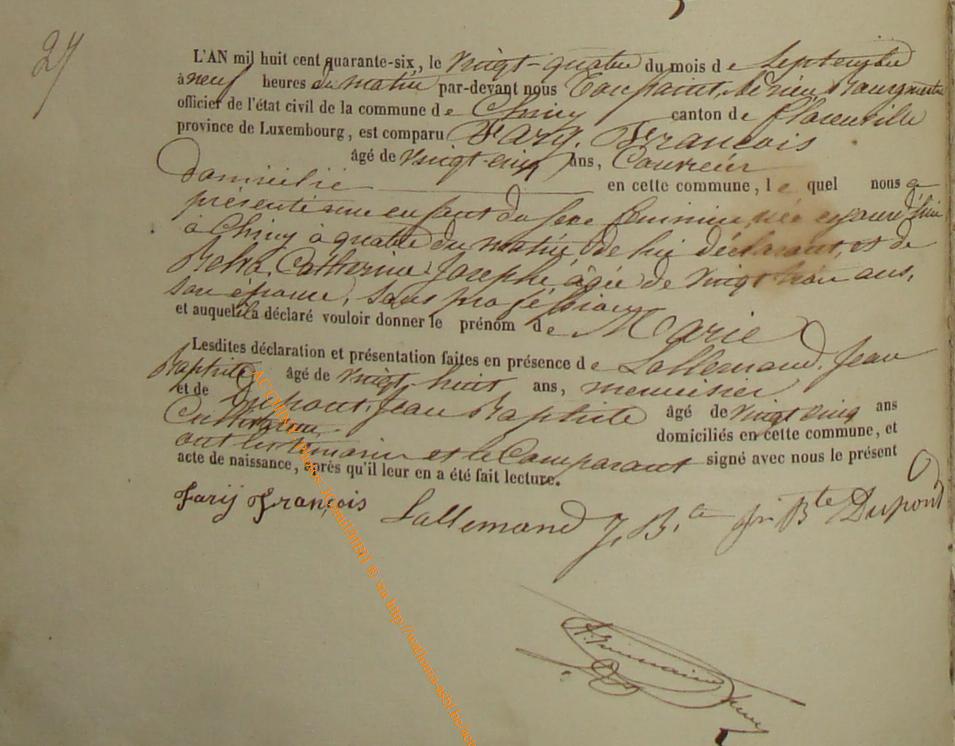 27
L'AN mil huit cent quarante-six, le vingt-quatre du mois de Septembre
à neuf heures du matin par-devant nous Bourgmestre
officier de l'état civil de la commune de Chiny canton de florenville
province de Luxembourg, est comparu Fary, François
âgé de vingt-cinq ans, Couvreur
domicilié en cette commune, le quel nous a
présenté un enfant du sexe féminin, née
à Chiny à quatre du matin, de lui déclarant, et de
Catherine Josephe, âgée de vingt huit ans,
son épouse, sans profession
et auquel il a déclaré vouloir donner le prénom de Marie
Lesdites déclaration et présentation faites en présence de Lallemand, Jean
Baptiste âgé de vingt-huit ans, menuisier
et de Dupont, Jean Baptiste âgé de vingt cinq ans
Cultivateur domiciliés en cette commune, et
ont les témoins et le Comparant signé avec nous le présent
acte de naissance, après qu'il leur en a été fait lecture.
Farij François Lallemand J. B.te Jn Bte Dupont